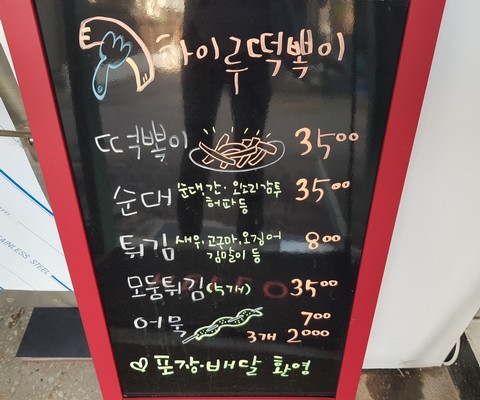 하이루떡볶이
떡볶이 3500
순대 순대,간·오소리감투 3500
허파등
튀김 새우,고구마,오징어 800
김말이 등
모둠튀김(5개) 3500
어묵 700
3개 2000
♡ 포장·배달 환영
STAINLESS STEEL